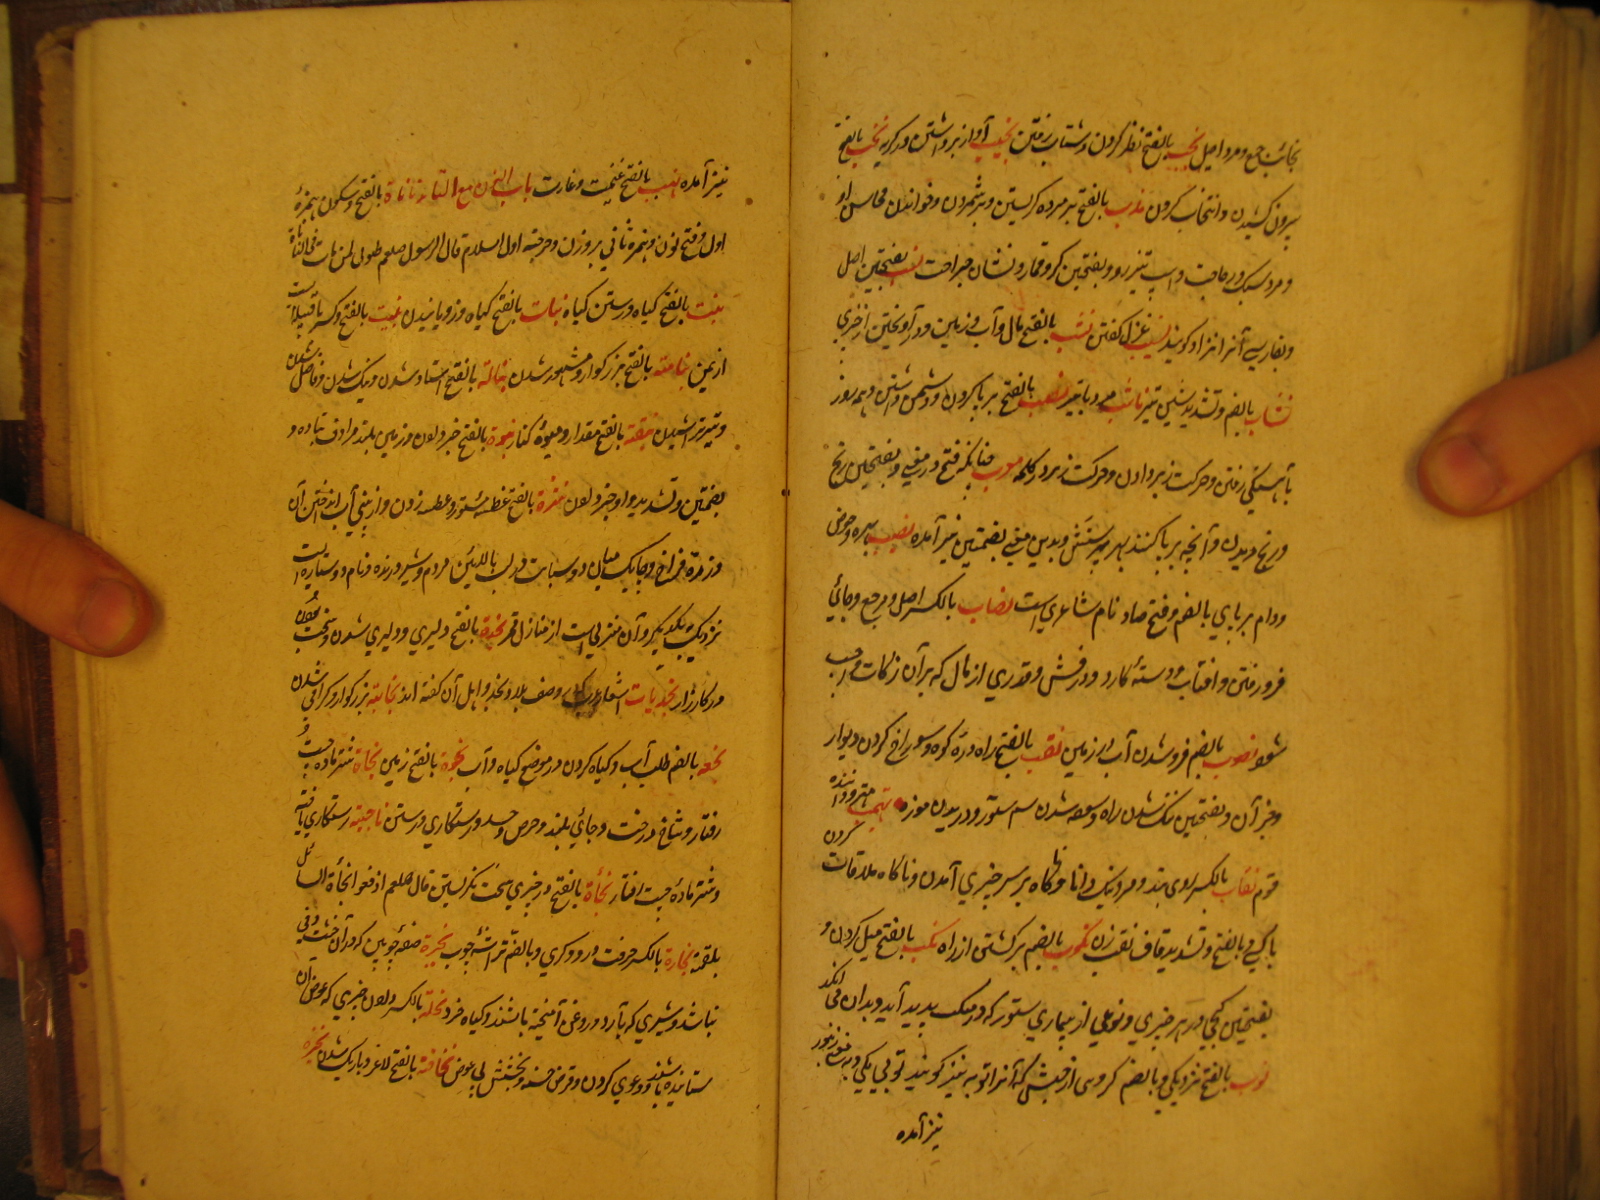 نجائب جمع و مرد اصیل نحب بالفتح نظر کردن و شتاب رفتن نحیب آواز برداشتن در گریه نخب بالفتح
بیرون کشیدن و انتخاب کردن ندب بالفتح بر مرده گریستن و بر شمردن و خواندن محاسن او
و مرد سبک در حاجت و اسپ تیز رو و بفتحتین گرو قمار و نشان جراحت نسب بفتحتین اصل
و بفارسی آنرا نژاد گویند نسیب غزل گفتن نشب بالفتح مال و آب و زمین و در آویختن از چیزی
نشاب بالضم و تشدید شین تیر ناشب مرد با تیر نصب بالفتح بر پا کردن و دشمن داشتن و همه روز
بآهستگی رفتن و حرکت زبر دادن و حرکت زبر در کلمه چنانکه فتح در مبنی و بفتحتین رنج
و رنج دیدن و آنچه بر پا کنند بهر پرستش و بدین معنی بضمتین نیز آمده نصیب بهره و حوض
و دام برپای بالضم و فتح صاد نام شاعری است نصاب بالکسر اصل و مرجع و جائی
فرو رفتن و آفتاب و دسته کارد و درفش و قدری از مال که بر آن زکات واجب
شود نضوب بالضم فرو شدن آب در زمین نقب بالفتح راه در کوه و سوراخ کردن دیوار
و جز آن و بفتحتین تنک شدن راه و سوده شدن سم ستور و دریدن موزه نقیب مهتر و داننده
قوم نقاب بالکسر روی بند و مرد نیک دانا و ناگاه بر سر چیزی آمدن و ناگاه ملاقات کردن
با کسی و بالفتح و تشدید قاف نقب زن نکوب بالضم برگشتن از راه نکب بالفتح میل کردن و
بفتحتین کجی در هر چیزی و نوعی از بیماری ستور که در منکب پدید آید و بدان می لنگد
نوب بالفتح نزدیکی و بالضم گروهی از حبش که آنرا نوبه نیز گویند نوبی یکی و به معنی زنبور
نیز آمده
نیز آمده نهب بالفتح غنیمت و غارت باب النون مع التاء نأنأة بالفتح و سکون همزهٔ
اول و فتح نون و همزه ثانی بر وزن دحرجة اول اسلام قال الرسول صلعم طوبی لمن مات فی النأنأة
نبت بالفتح گیاه و رستن گیاه نبات بالفتح گیاه و رویانیدن نبیت بالفتح و کسر با قبیله است
از یمن نباهة بالفتح بزرگوار و مشهور شدن نبالة بالفتح استاد شدن و نیک شدن و فاضل شدن
و تیر تراشیدن نبقة بالفتح مقدار و میوهٔ کنار نبوة بالفتح خبر دادن و زمین بلند مرادف نباوه و
بضمتین و تشدید واو خبر دادن نثرة بالفتح عطسهٔ ستور و عطسه زدن و از بینی آب انداختن آن
و زره فراخ و چابک میان دو سبلت و لب بالائین مردم و شیر درنده و نام دو ستاره است
نزدیک یکدیگر و آن منزلی است از منازل قمر نجدة بالفتح دلیری و دلیری شدن و سخت بودن
در کارزار نجدیات اشعار عرب که در وصف بلاد نجد و اهل آن گفته اند نجابة بزرگوار و گرامی شدن
نجعة بالضم طلب آب و گیاه کردن در موضع گیاه و آب نجوة بالفتح زمین نجاة شتر ماده چست
رفتار و شاخ درخت و جائی بلند و حرص و حسد و رستگاری و رستن ناجیة رستگاری یافته
و شتر ماده چست رفتار نجأة بالفتح در چیزی سخت نگریستن قال صلعم ادفعوا نجأة السائل
بلقمة نجارة بالکسر حرفت درودگری و بالضم تراشهٔ چوب نجیرة صفهٔ چوبین که در آن خشت و نی
نباشد و شیری که بآرد و روغن آمیخته باشند و گیاه خرد نحلة بالکسر دادن چیزی که عوض آن
ستانیده باشند و دعوی کردن و قرض حسنه و بخشش بی عوض نحافة بالفتح لاغر و باریک شدن نخرة